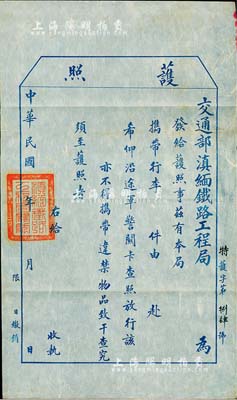 護照
交通部滇緬鐵路工程局 為
發給護照事茲有本局
攜帶行李 件由 赴
希仰沿途軍警關卡查照放行該
亦不得攜帶違禁物品致干查究
須至護照者
右給 收執
中華民國 年 月 日
限 日繳銷